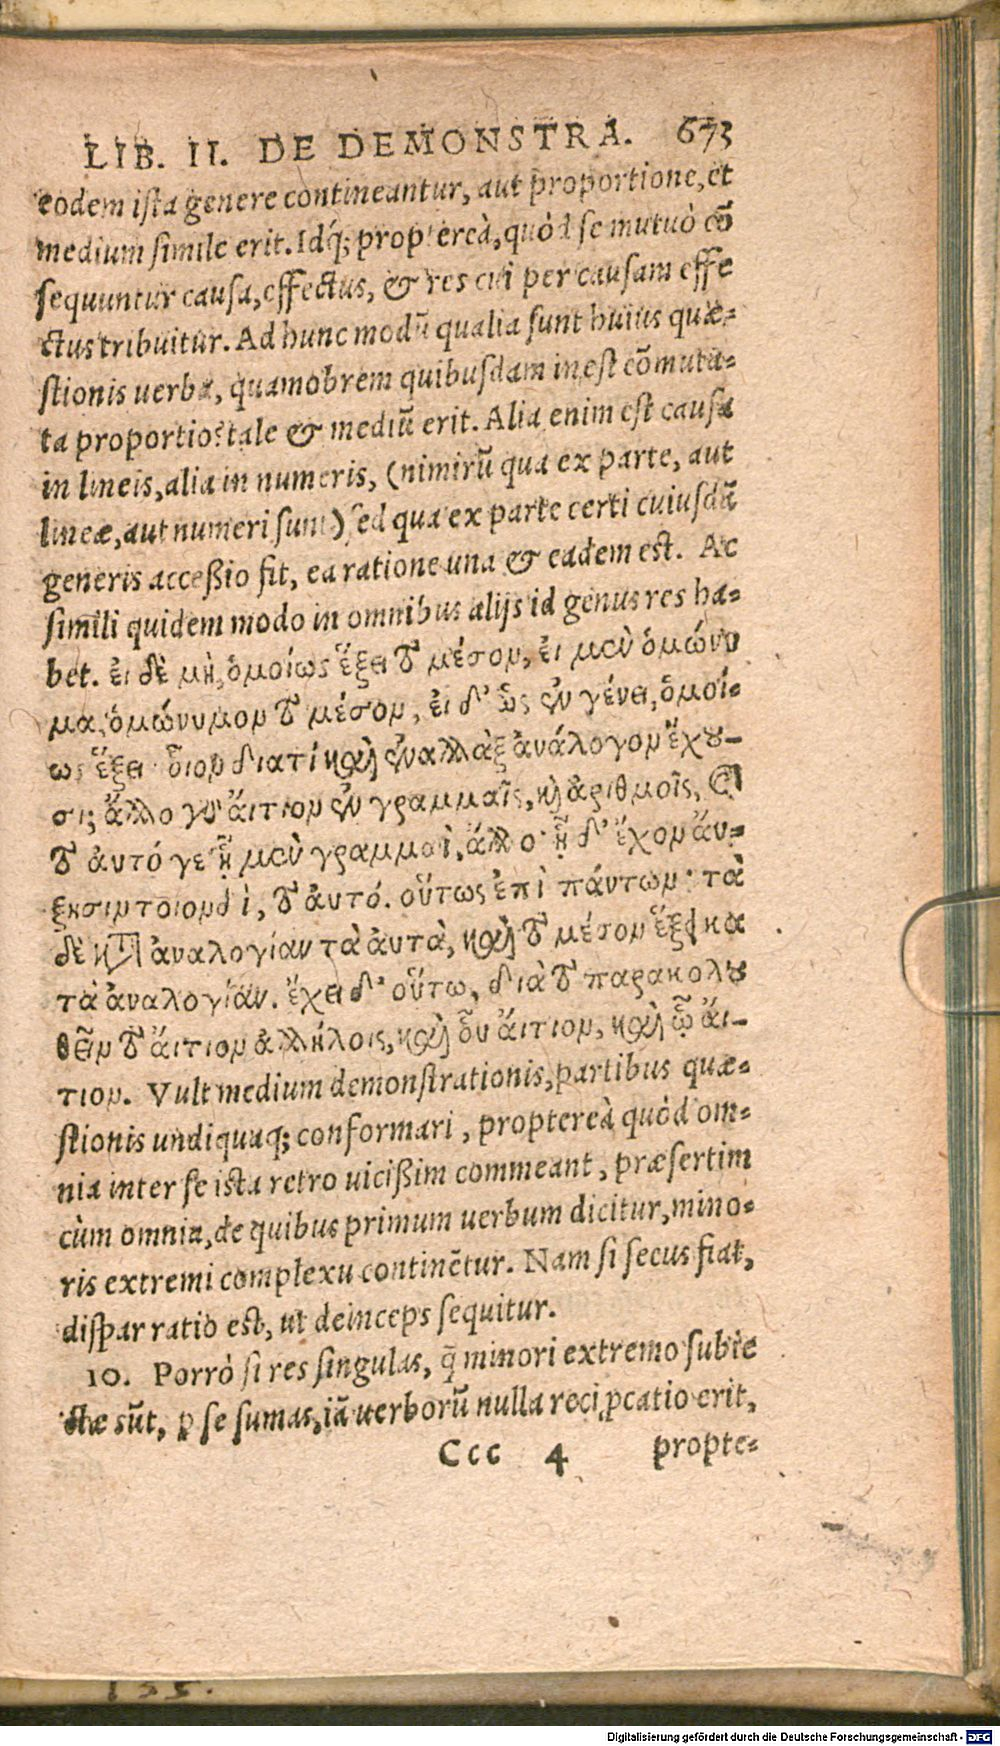 LIB. II. DE DEMONSTRA. 673
eodem ista genere contineantur, aut proportione, et
medium simile erit. Idq́; proptereà, quòd se mutuò cō
sequuntur causa, effectus, & res cui per causam effe
ctus tribuitur. Ad hunc modū qualia sunt huius quæ-
stionis uerba, quamobrem quibusdam inest cōmuta-
ta proportio? tale & mediū erit. Alia enim est causa
in lineis, alia in numeris, (nimirū qua ex parte, aut
lineæ, aut numeri sunt) sed qua ex parte certi cuiusdā
generis accessio fit, ea ratione una & eadem est. Ac
simili quidem modo in omnibus alijs id genus res ha-
bet. ἐι δὲ μὴ, ὁμοίως ἕξει τὸ μέσον, ἐι μὲν ὁμώνυ
μα, ὁμώνυμον τὸ μέσον, ἐι δ' ὡς ἐν γένει, ὁμοί-
ως ἕξει οἷον διατί καὶ ἐναλλὰξ ἀνάλογον ἔχου-
σι; ἄλλο γὰρ ἄιτιον ἐν γραμμαῖς, κὴ ἀριθμοῖς, καὶ
τὸ ἀυτό γε ᾗ μὲν γραμμαὶ, ἄλλο· ᾗ δ' ἔχον ἄυ-
ξησιν τοιονδὶ, τὸ ἀυτό. οὕτως ἐπὶ πάντων· τὰ
δὲ κατ' ἀναλογίαν τὰ ἀυτὰ, καὶ τὸ μέσον ἕξει κα
τὰ ἀναλογίαν. ἔχει δ' οὕτω, διὰ τὸ παρακολου
θεῖν τὸ ἄιτιον ἀλλήλοις, καὶ οὗ ἄιτιον, καὶ ᾧ ἄι-
τιον. Vult medium demonstrationis, partibus quæ-
stionis undiquaq; conformari, proptereà quòd om-
nia inter se ista retro uicissim commeant, præsertim
cùm omnia, de quibus primum uerbum dicitur, mino-
ris extremi complexu continētur. Nam si secus fiat,
dispar ratio est, ut deinceps sequitur.
10. Porrò si res singulas, q̄ minori extremo subie
ctæ sūt, p se sumas, iā uerborū nulla recipcatio erit,
Ccc 4 propte-
Digitalisierung gefördert durch die Deutsche Forschungsgemeinschaft - DFG